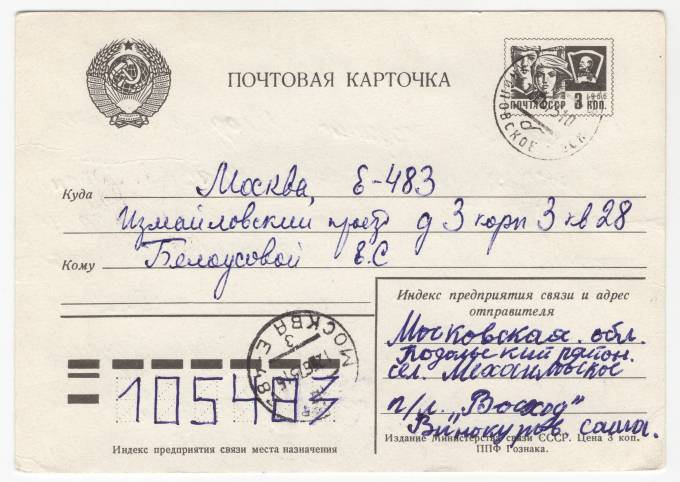 ПОЧТОВАЯ КАРТОЧКА
ПОЧТА СССР 3 КОП.
1966
Куда Москва, Е-483
Измайловский проезд д 3 корп 3 кв 28
Кому Белоусовой Е.С
МОСКВА Е-483
Индекс предприятия связи и адрес
отправителя
Московская обл.
Подольский район.
сел. Михайловское
п/л. „Восход"
Винокуров саша.
105483
Индекс предприятия связи места назначения
Издание Министерства связи СССР. Цена 3 коп.
ППФ Гознака.